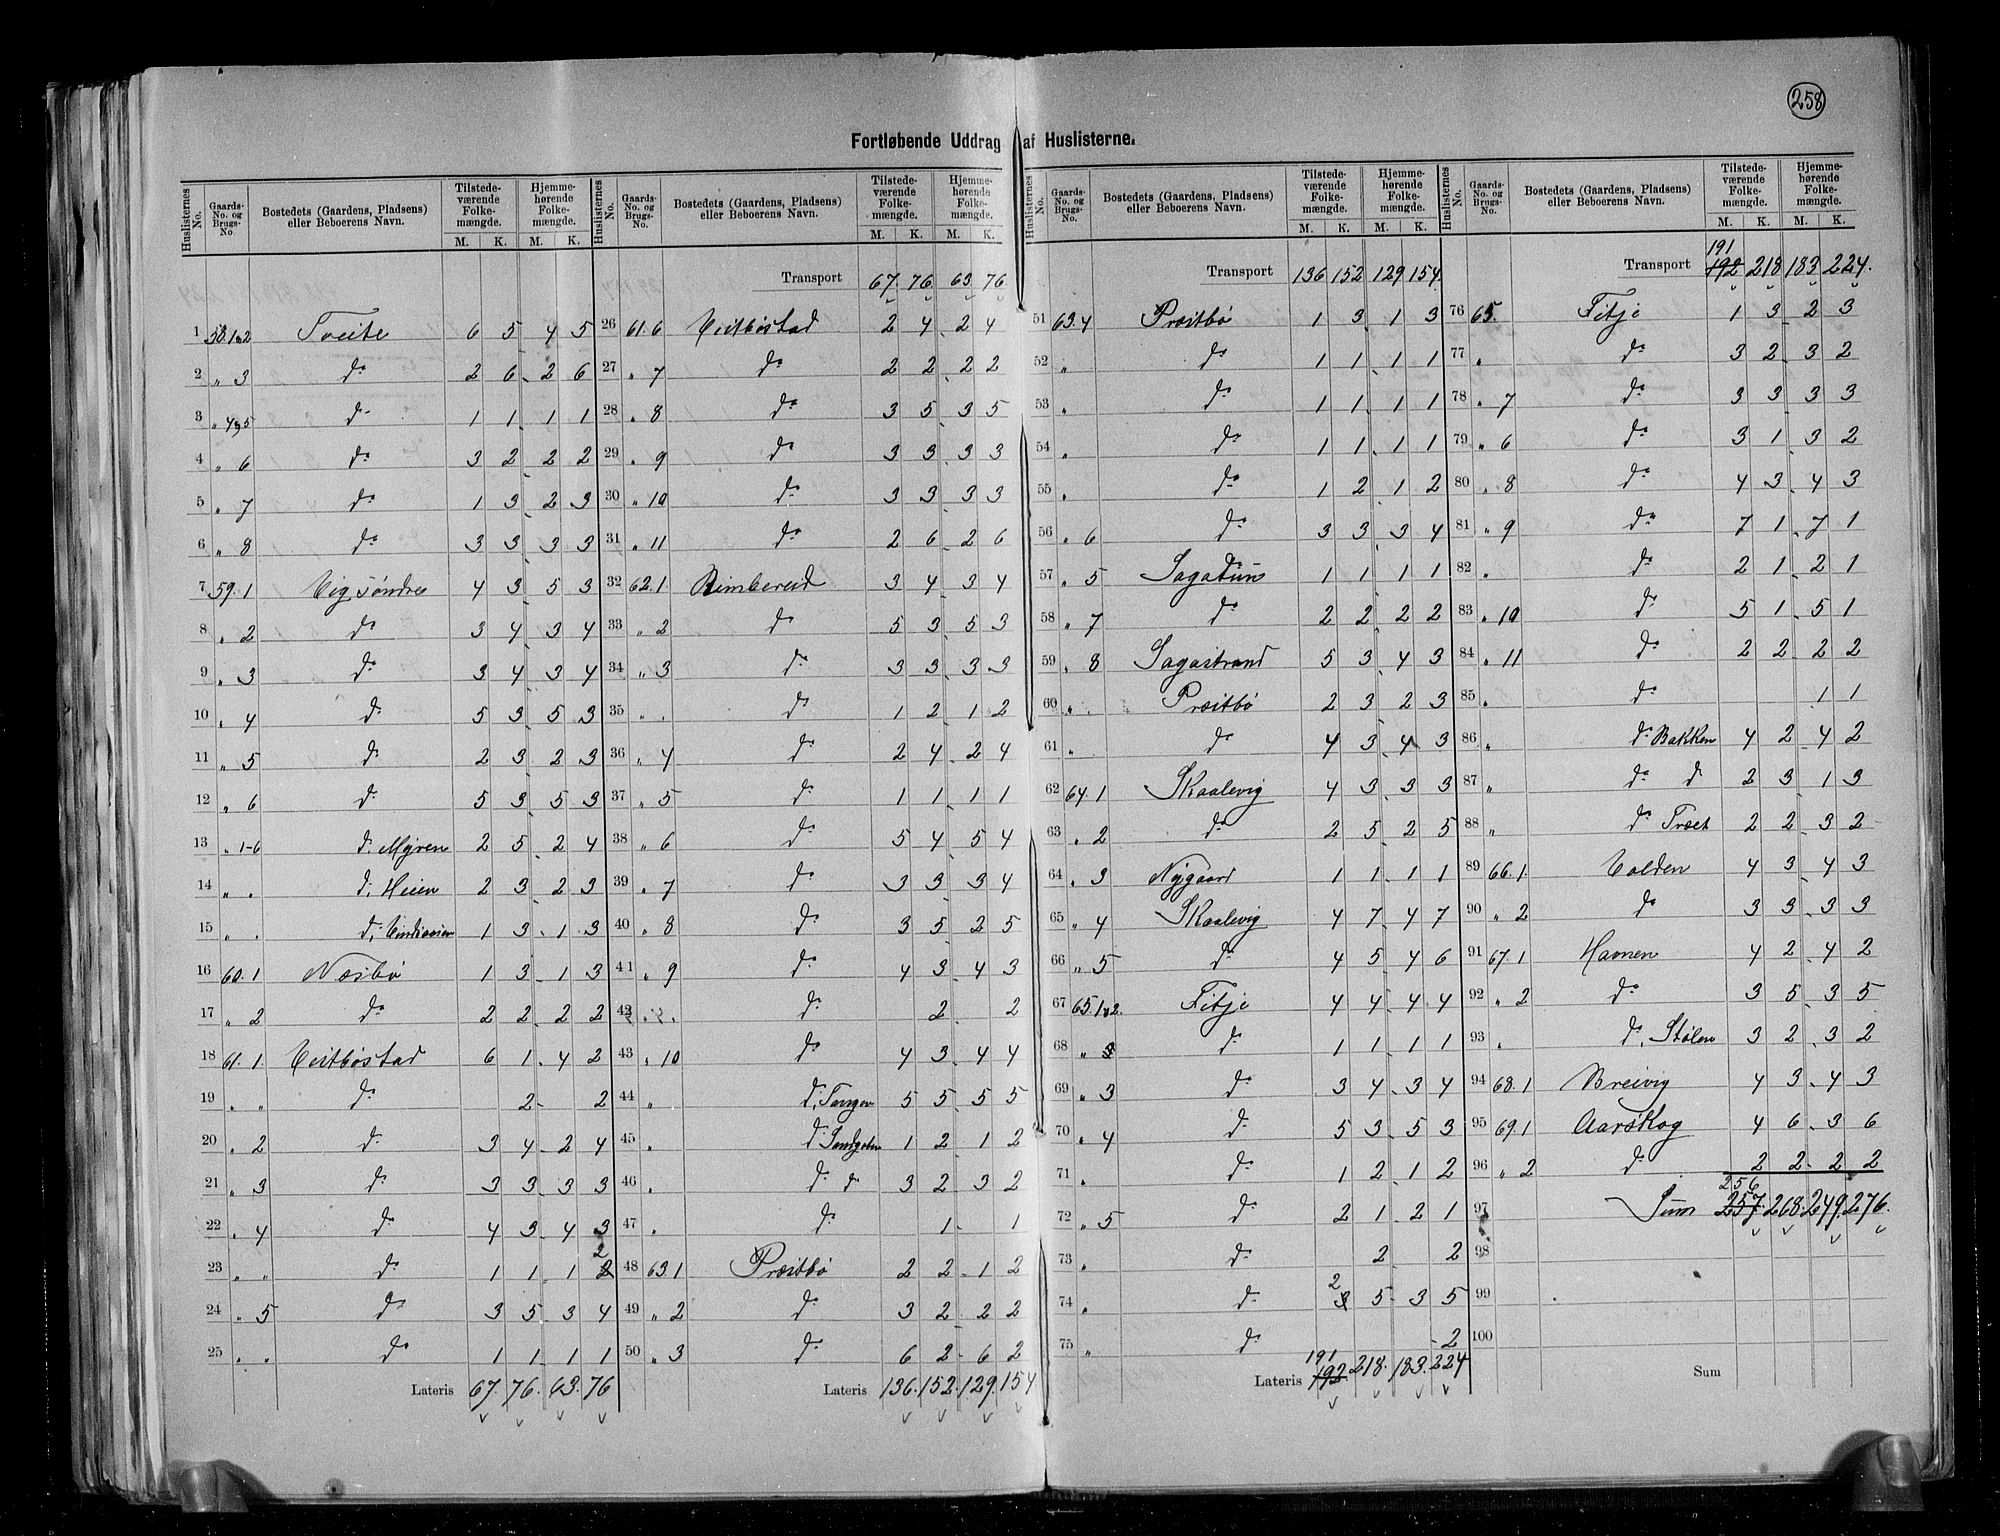 258
Fortløbende Uddrag af Huslisterne.
Huslisternes No. Gaards-No. og Brugs-No. Bostedets (Gaardens, Pladsens) eller Beboerens Navn. Tilstedeværende Folkemængde. M. K. Hjemmehørende Folkemængde. M. K.
1 58.1,2 Tveite 6 5 4 5
2 " 3 do 2 6 2 6
3 " 4,5 do 1 1 1 1
4 " 6 do 3 2 2 2
5 " 7 do 1 3 2 3
6 " 8 do 3 3 3 3
7 59.1 Vigsøndre 4 3 5 3
8 " 2 do 3 4 3 4
9 " 3 do 3 4 3 4
10 " 4 do 5 3 5 3
11 " 5 do 2 3 2 3
12 " 6 do 5 3 5 3
13 " 1-6 do Myren 2 5 2 4
14 " " do Heien 2 3 2 3
15 " " do 1 3 1 3
16 60.1 Næsbø 1 3 1 3
17 " 2 do 2 2 2 2
18 61.1 Vestbøstad 6 1 4 2
19 " " do 2 2
20 " 2 do 3 4 2 4
21 " 3 do 3 3 3 3
22 " 4 do 4 3 4 3
23 " " do 1 1 1 2
24 " 5 do 3 5 3 4
25 " " do 1 1 1 1
Lateris 67. 76. 63. 76
Huslisternes No. Gaards-No. og Brugs-No. Bostedets (Gaardens, Pladsens) eller Beboerens Navn. Tilstedeværende Folkemængde. M. K. Hjemmehørende Folkemængde. M. K.
Transport 67. 76. 63. 76
26 61.6 Vestbøstad 2 4 2 4
27 " 7 do 2 2 2 2
28 " 8 do 3 5 3 5
29 " 9 do 3 3 3 3
30 " 10 do 3 3 3 3
31 " 11 do 2 6 2 6
32 62.1 Rimbereid 3 4 3 4
33 " 2 do 5 3 5 3
34 " 3 do 3 3 3 3
35 " " do 1 2 1 2
36 " 4 do 2 4 2 4
37 " 5 do 1 1 1 1
38 " 6 do 5 4 5 4
39 " 7 do 3 3 3 4
40 " 8 do 3 5 2 5
41 " 9 do 4 3 4 3
42 " " do 2 2
43 " 10 do 4 3 4 4
44 " do, Tangen 5 5 5 5
45 " do 1 2 1 2
46 " do do 3 2 3 2
47 " do 1 1
48 63.1 Præstbø 2 2 1 2
49 " 2 do 3 2 2 2
50 " 3 do 6 2 6 2
Lateris 136. 152. 129. 154
Huslisternes No. Gaards-No. og Brugs-No. Bostedets (Gaardens, Pladsens) eller Beboerens Navn. Tilstedeværende Folkemængde. M. K. Hjemmehørende Folkemængde. M. K.
Transport 136 152 129 154
51 63.4 Præstbø 1 3 1 3
52 " do 1 1 1 1
53 " do 1 1 1 1
54 " do 1 1 1 1
55 " do 1 2 1 2
56 " 6 do 3 3 3 4
57 " 5 Sagatun 1 1 1 1
58 " 7 do 2 2 2 2
59 " 8 Sagastrand 5 3 4 3
60 " Præstbø 2 3 2 3
61 " do 4 3 4 3
62 64.1 Skaalevig 4 3 3 3
63 " 2 do 2 5 2 5
64 " 3 Nygaard 1 1 1 1
65 " 4 Skaalevig 4 7 4 7
66 " 5 do 4 5 4 6
67 65.1,2. Fitje 4 4 4 4
68 " 3 do 1 1 1 1
69 " 3 do 3 4 3 4
70 " 4 do 5 3 5 3
71 " do 1 2 1 2
72 " 5 do 2 1 2 1
73 " do 2 2
74 " do 2 3 5 3 5
75 " do 2
191
Lateris 192 218. 183. 224
Huslisternes No. Gaards-No. og Brugs-No. Bostedets (Gaardens, Pladsens) eller Beboerens Navn. Tilstedeværende Folkemængde. M. K. Hjemmehørende Folkemængde. M. K.
191
Transport 192 218 183 224.
76 65. Fitje 1 3 2 3
77 " do 3 2 3 2
78 " 7 do 3 3 3 3
79 " 6 do 3 1 3 2
80 " 8 do 4 3 4 3
81 " 9 do 7 1 7 1
82 " do 2 1 2 1
83 " 10 do 5 1 5 1
84 " 11 do 2 2 2 2
85 " do 1 1
86 " do Bakken 4 2 4 2
87 " do do 2 3 1 3
88 " do Træet 2 2 3 2
89 66.1. Volden 4 3 4 3
90 " 2 do 3 3 3 3
91 67.1 Havnen 4 2 4 2
92 " 2 do 3 5 3 5
93 " do, Stølen 3 2 3 2
94 68.1 Breivig 4 3 4 3
95 69.1 Aarskog 4 6 3 6
96 " 2 do 2 2 2 2
256
97 Sum 257. 268. 249. 276.
98
99
100
Sum